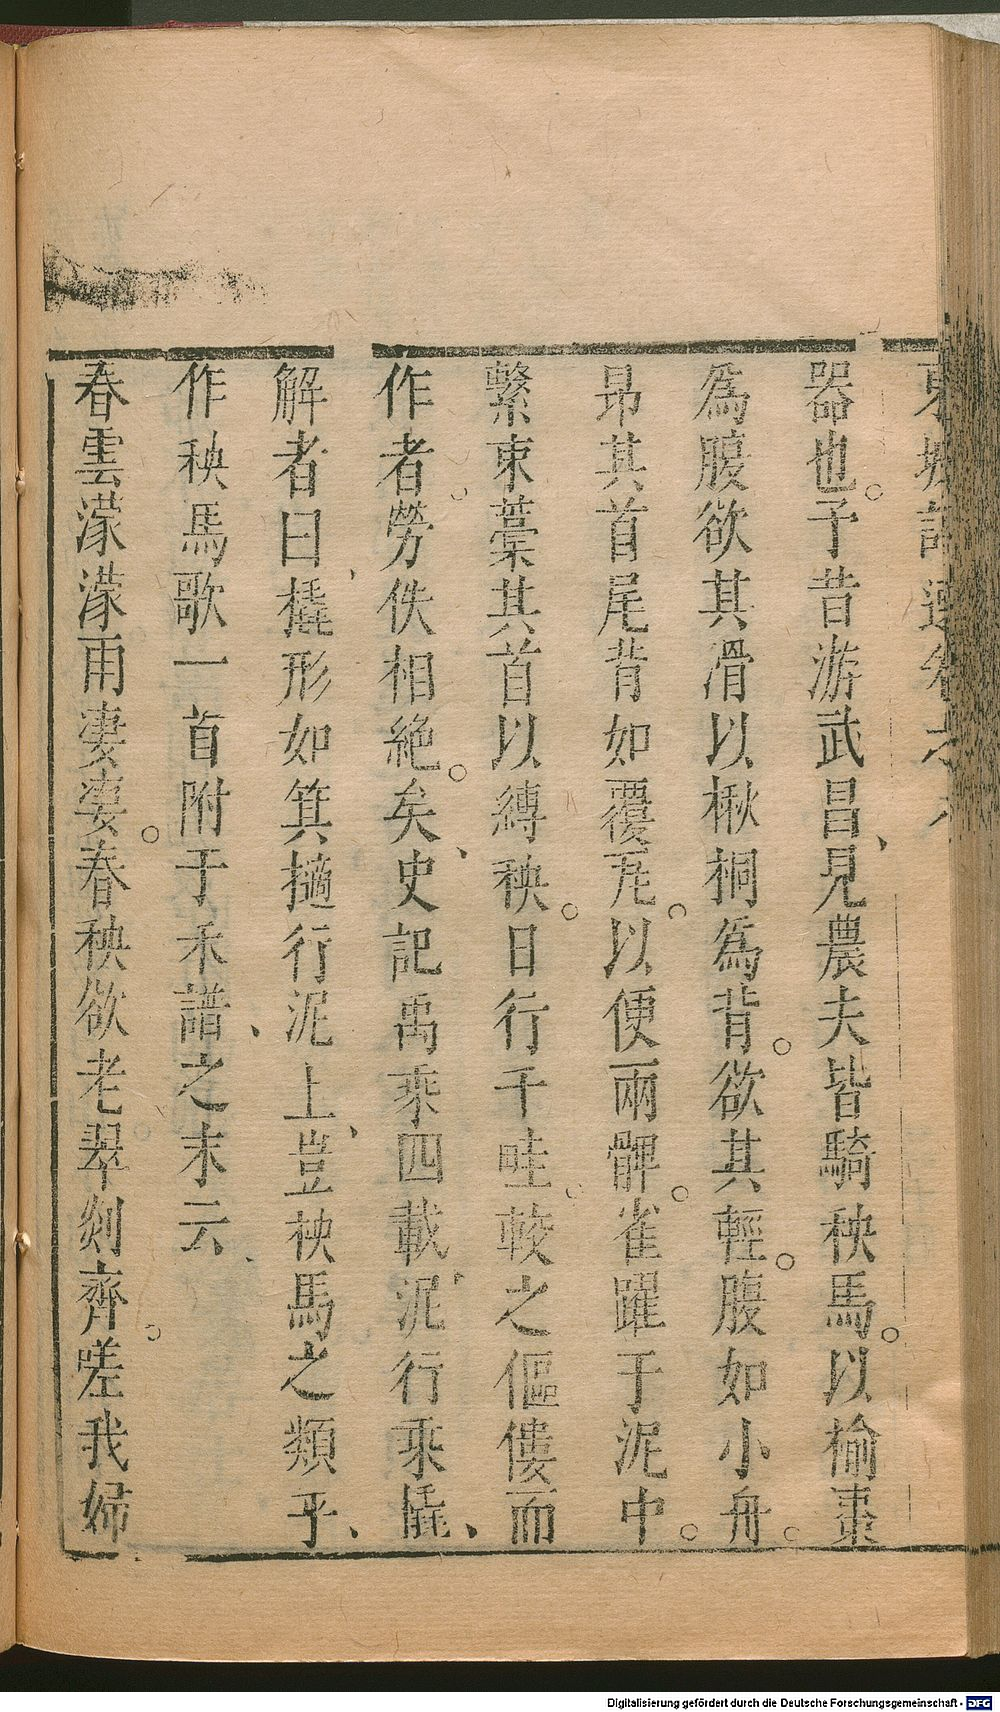 東坡詩選卷之
器也。予昔游武昌、見農夫皆騎秧馬。以榆棗
爲腹欲其滑以楸桐爲背。欲其輕。腹如小舟。
昂其首尾背如覆瓦。以便兩髀。雀躍于泥中。
繫束藁其首以縛秧。日行千畦。較之傴僂而
作者勞佚相絶。矣、史記禹乘四載、泥行乘橇、
解者曰、橇形如箕擿行泥上、豈秧馬之類乎、
作秧馬歌一首附于禾譜、之末云、
春雲濛濛雨凄凄。春秧欲老翠剡齊。嗟我婦
Digitalisierung gefördert durch die Deutsche Forschungsgemeinschaft - DFG